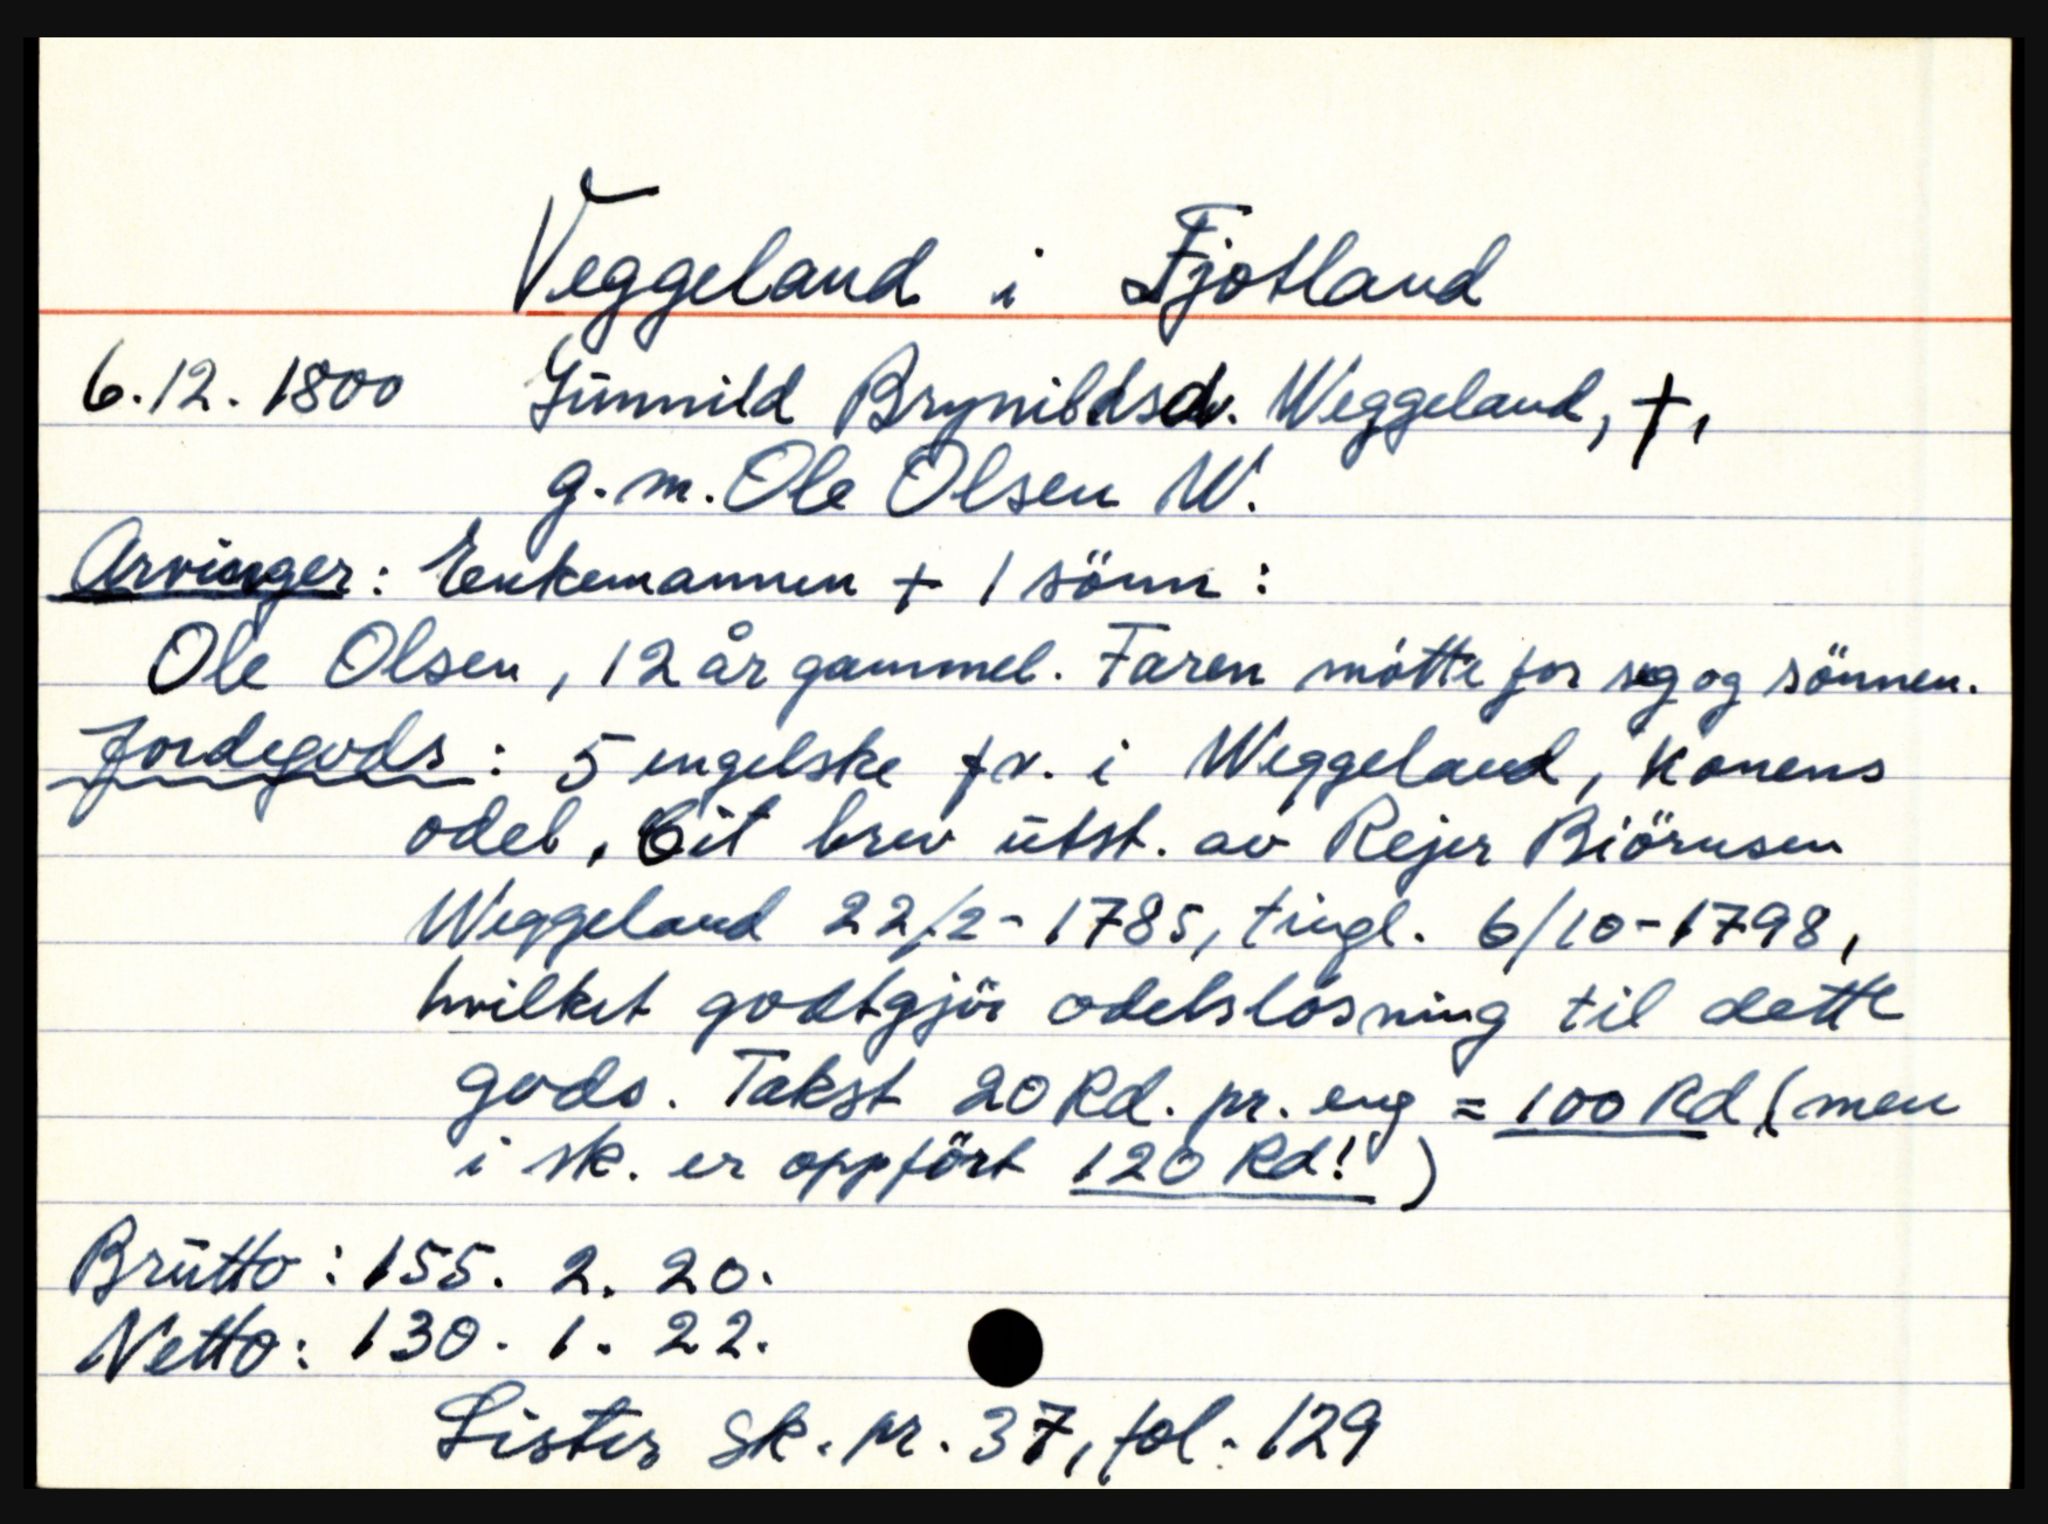 Veggeland i Fjotland
6.12.1800 Gunnild Brynildsdr. Weggeland, †,
g.m. Ole Olsen W.
Arvinger: Enkemannen + 1 sönn:
Ole Olsen, 12 år gammel. Faren mötte for seg og sönnen.
Jordegods: 5 engelske fv. i Weggeland, konens
odel, brev utst. av Rejer Biörnsen
Weggeland 22/2-1785, tingl. 6/10-1798,
hvilket godtgjör odelslösning til dette
gods. Takst 20 Rd. pr. eng = 100 Rd (men
i sk. er oppfört 120 Rd!)
Brutto: 155. 2. 20.
Netto: 130. 1. 22.
Lister sk. pr. 37, fol. 129